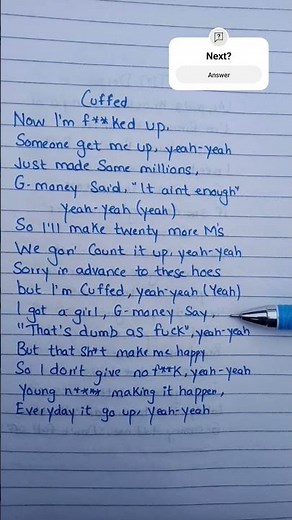 Next?
Answer
Cuffed
Now I'm f**ked up,
Someone get me up, yeah-yeah
Just made Some millions,
G-money Said, "It aint enough"
yeah-yeah (yeah)
So I'll make twenty more M's
We gon' Count it up, yeah-yeah
Sorry in advance to these hoes
but I'm Cuffed, yeah-yeah (Yeah)
I got a girl, G-money Say,
"That's dumb as fuck", yeah-yeah
But that Sh*t make me happy
So I don't give no f**K, yeah-yeah
Young n**** making it happen,
Everyday it go up, Yeah-yeah